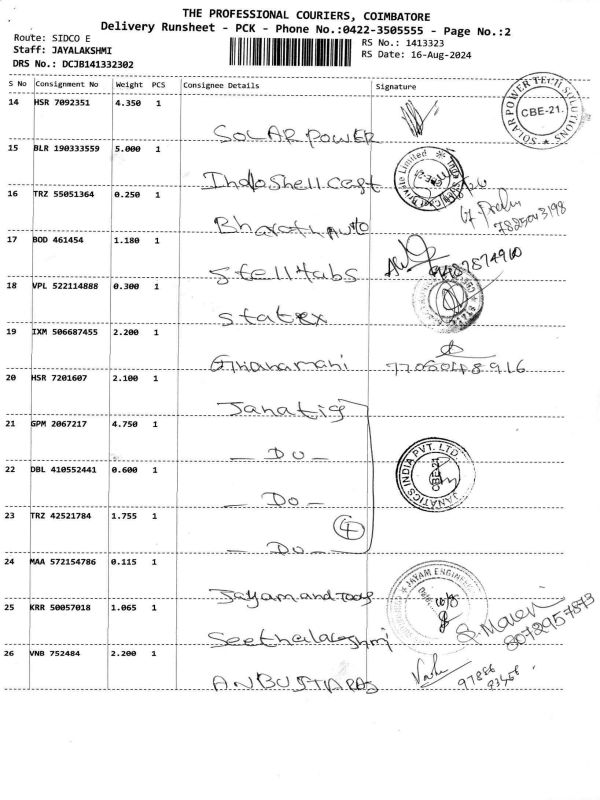 THE PROFESSIONAL COURIERS, COIMBATORE
Delivery Runsheet - PCK - Phone No.:0422-3505555 - Page No.:2
Route: SIDCO E
Staff: JAYALAKSHMI
DRS No.: DCJB141332302
RS No.: 1413323
RS Date: 16-Aug-2024
S No Consignment No Weight PCS Consignee Details Signature
14 HSR 7092351 4.350 1
SOLAR POWER
SOLAR POWER TECH SOLUTIONS
CBE-21.
15 BLR 190333559 5.000 1
Indoshell cast
16 TRZ 55051364 0.250 1
Bharath Auto
7825043198
17 BOD 461454 1.180 1
Stell tabs
9487874910
18 VPL 522114888 0.300 1
Statex
19 IXM 506687455 2.200 1
Gnanamani
20 HSR 7201607 2.100 1
Janatig
21 GPM 2067217 4.750 1
- Do -
22 DBL 410552441 0.600 1
- Do -
JANATICS INDIA PVT. LTD.
CBE-24
23 TRZ 42521784 1.755 1
- Do -
4
24 MAA 572154786 0.115 1
Jayam and Tools
JAYAM ENGINEE
25 KRR 50057018 1.065 1
Seethalakshmi
8072957873
26 VNB 752484 2.200 1
97886